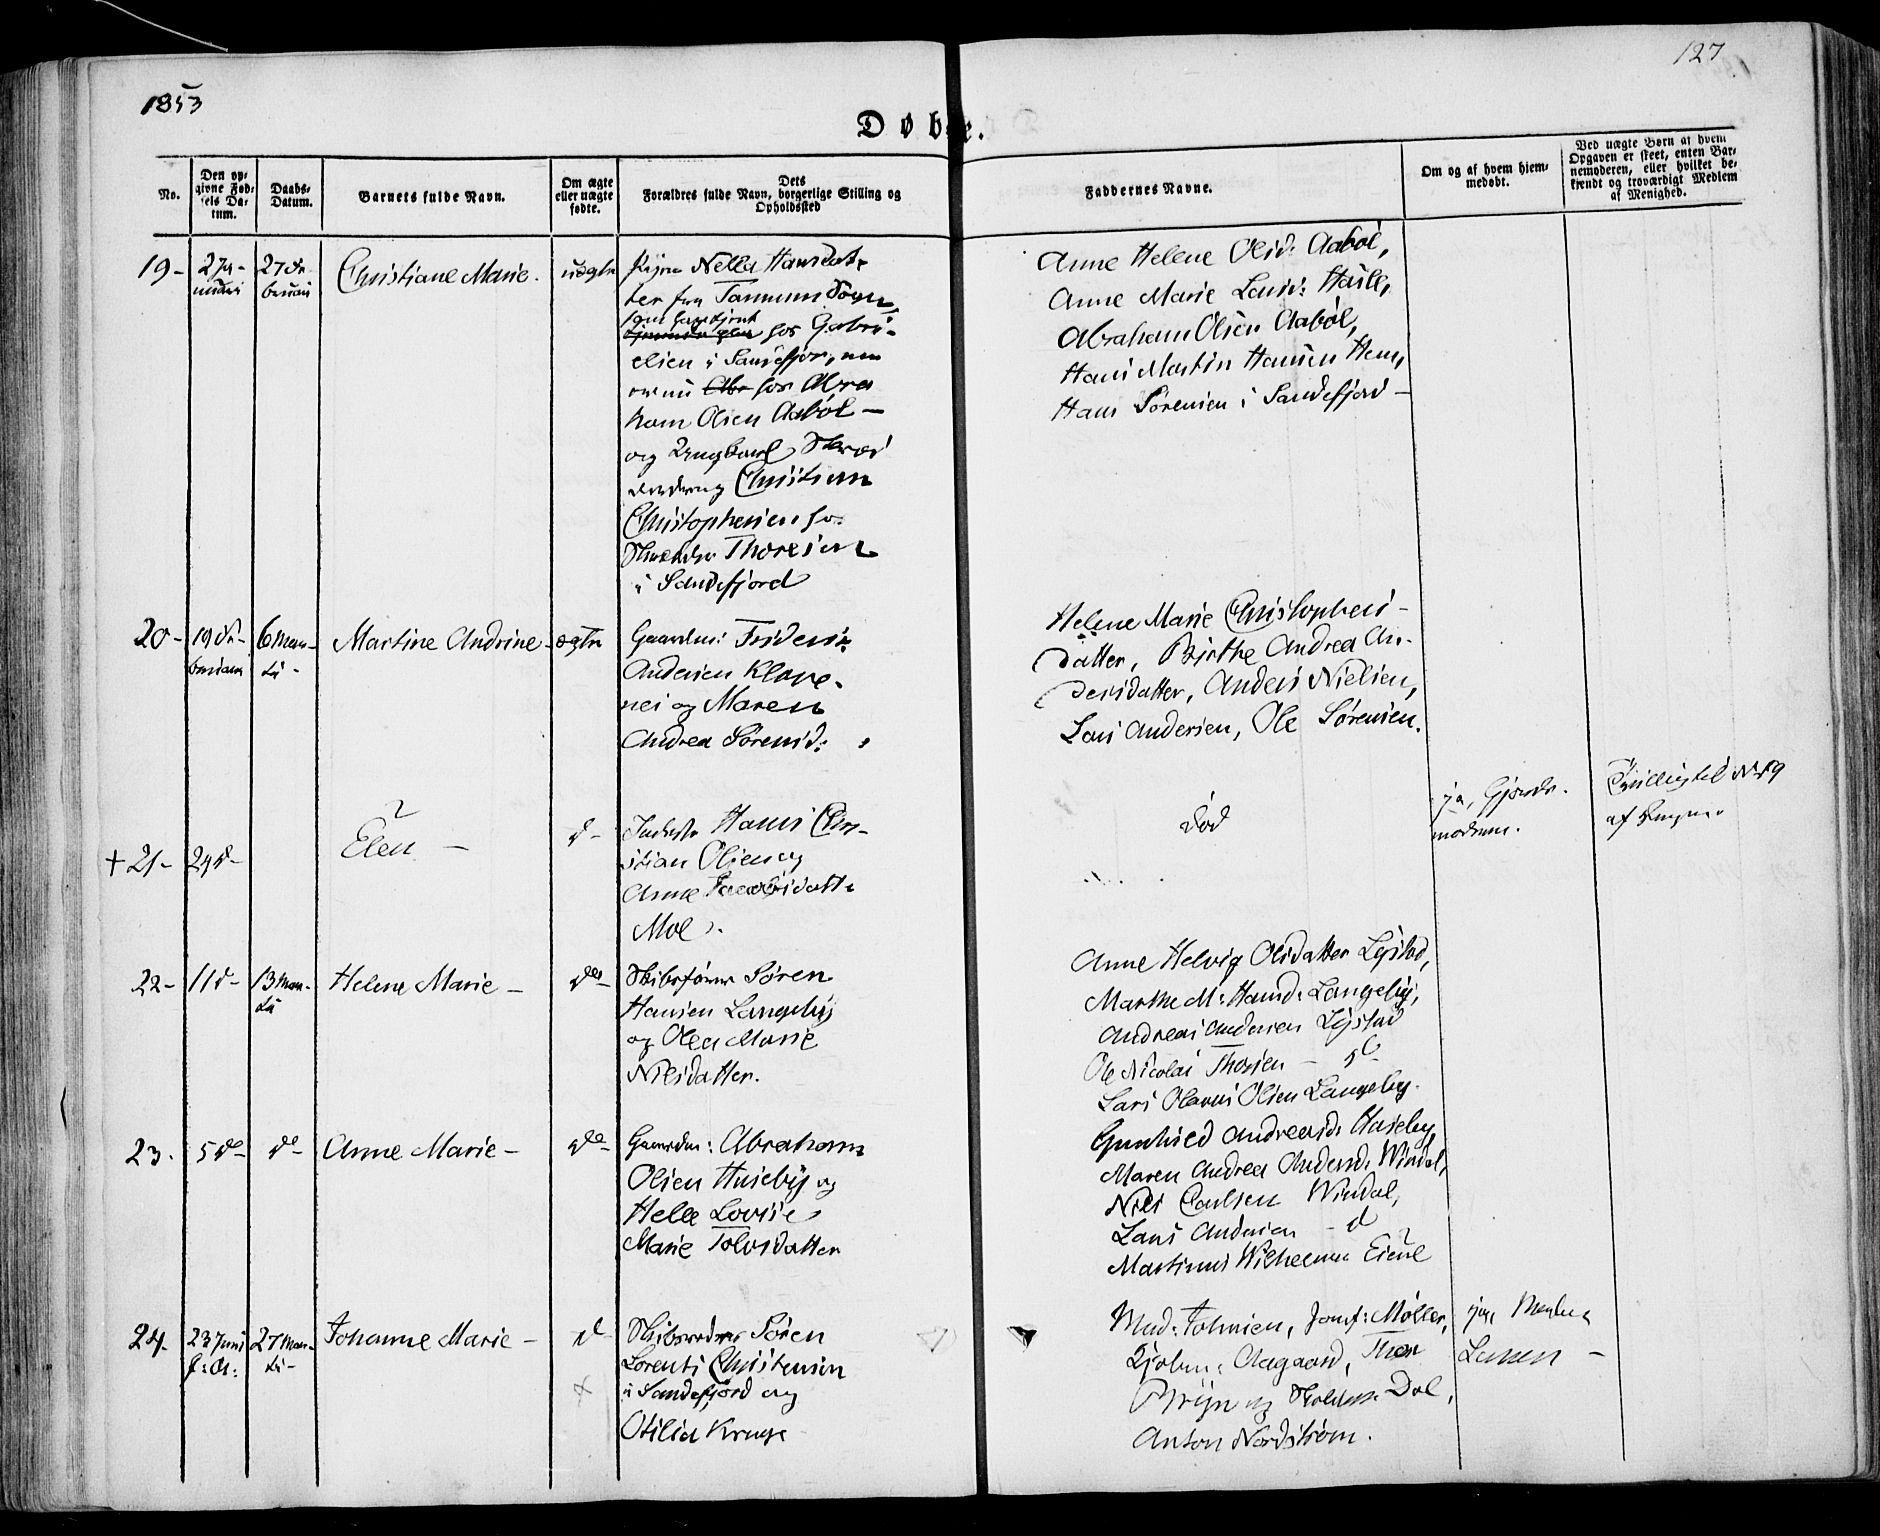 1853
127
Døbte.
No.
Den op-
givne Fød-
sels Da-
tum.
Daabs-
Datum.
Barnets fulde Navn.
Om ægte
eller uægte
fødte.
Dets
Forældres fulde Navn, borgerlige Stilling og
Opholdssted
Faddernes Navne.
Om og af hvem hjem-
medøbt.
Ved uægte Børn af hvem
Opgaven er skeet, enten Bar-
nemoderen, eller hvilket be-
kjendt og troværdigt Medlem
af Menighed.
19-
2 Ja-
nuari
27 Fe-
bruari
Christiane Marie.
uægte
Pigen Nella Hansdat-
ter fra Tanum Sogn,
hos Gabri-
elsen i Sandefjor,
er nu hos Abra
ham Olsen Aabøl -
og Ungkarl Skræ
Christian
Christophersen
Skrædder Thoresen
i Sandefjord
Anne Helene Olsd: Aabøl,
Anne Marie Larsd:
Abraham Olsen Aabøl,
Hans Martin Hansen Hem,
Hans Sørensen i Sandefjord -
20-
19 Fe-
bruari
6 Mar-
ts -
Martine Andrine -
ægte
Gaardm: Friderik
Andersen Klave-
nes og Maren
Andrea Sørensd:
Helene Marie Christophers-
datter, Birthe Andrea An-
dersdatter, Anders Nielsen,
Lars Andersen, Ole Sørensen.
+ 21-
24 d-
Elen -
d -
Inderste Hans Chri-
stian Olsen og
Anne
Moe.
Død
ja, Gjorde-
moderen.
af
22-
11 d-
13 Mar-
ts
Helene Marie -
do-
Skibsfører Søren
Hansen Langeby
og Olea Marie
Nilsdatter.
Anne Helvig Olsdatter Lystad,
Marthe M: Hansd: Langeby,
Andreas Andersen Lystad
Ole Nicolai Thorsen -
Lars Olavus Olsen Langeby.
23.
5 do-
do-
Anne Marie -
do-
Gaardm: Abraham
Olsen Huseby og
Helle Lovise
Marie Tolvsdatter
Gunhild Andreasd: Huseby,
Maren Andrea Andersd: Windal,
Nils Paulsen Windal,
Lars Andersen - d
Martinus Wilhelmsen
24.
23 Juni
f: A:
27 Mar-
ts -
Johanne Marie -
d
Skibsreder Søren
Lorents Christensen
i Sandefjord og
Otilia Kruge
Mad: Johnsen, Jomf: Møller,
Kjøbm: Aagaard, Thor
Bryn og Dal,
Anton Nordstrøm.
ja,
Larsen -